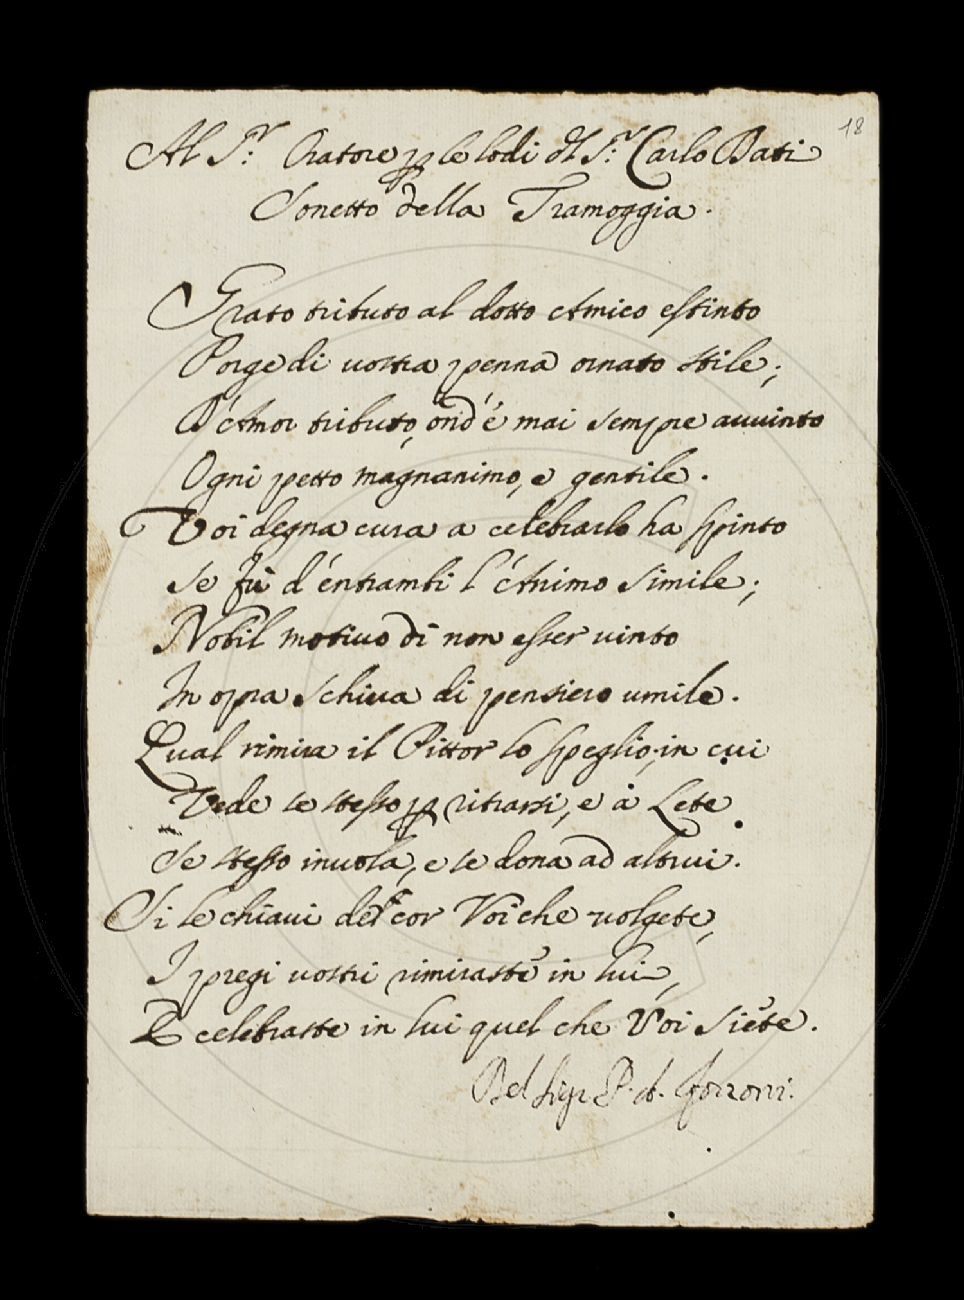 18
Al S.r Oratore p le lodi dl S.r Carlo Dati
Sonetto della Tramoggia.
Grato tributo al dotto Amico estinto
Porge di vostra penna ornato stile;
D'Amor tributo, ond'è mai sempre avvinto
Ogni petto magnanimo, e gentile.
Voi degna cura a celebrarlo ha spinto
Se fù d'entrambi l'Animo simile;
Nobil motivo di non esser vinto
In opra schiva di pensiero umile.
Qual rimira il Pittor lo speglio, in cui
Vede se stesso p ritrarsi, e à Lete
Se stesso invola, e se dona ad altrui.
Si le chiavi del cor Voi che volgete,
I pregi vostri rimiraste in lui,
E celebraste in lui quel che Voi siete.
Del Sigr P. A.